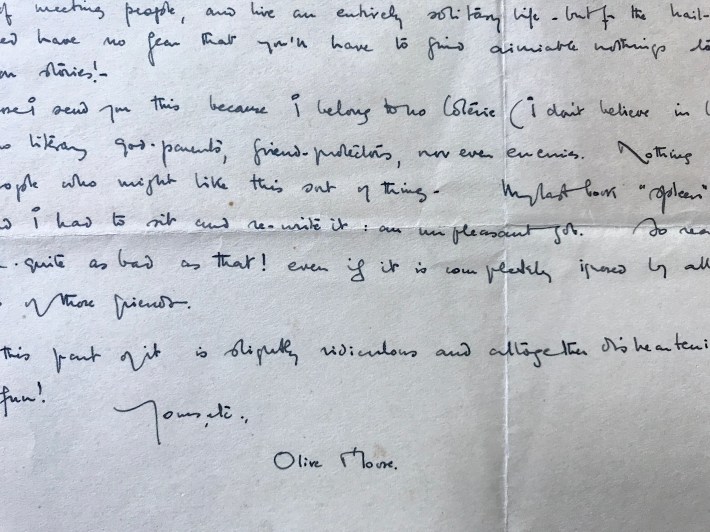 of meeting people, and live an entirely solitary life - but for the
have no fear that you'll have to find aimiable nothings
stories! -
i send you this because i belong to no Côterie (i don't believe in
literary god-parents, friend-protectors, nor even enemies. Nothing
people who might like this sort of thing - My last book "Spleen"
i had to sit and re-write it : an unpleasant job. Do
quite as bad as that! even if it is completely ignored by all
of those friends.
this part of it is slightly ridiculous and altogether
fun!
Yours, etc.,
Olive Moore.